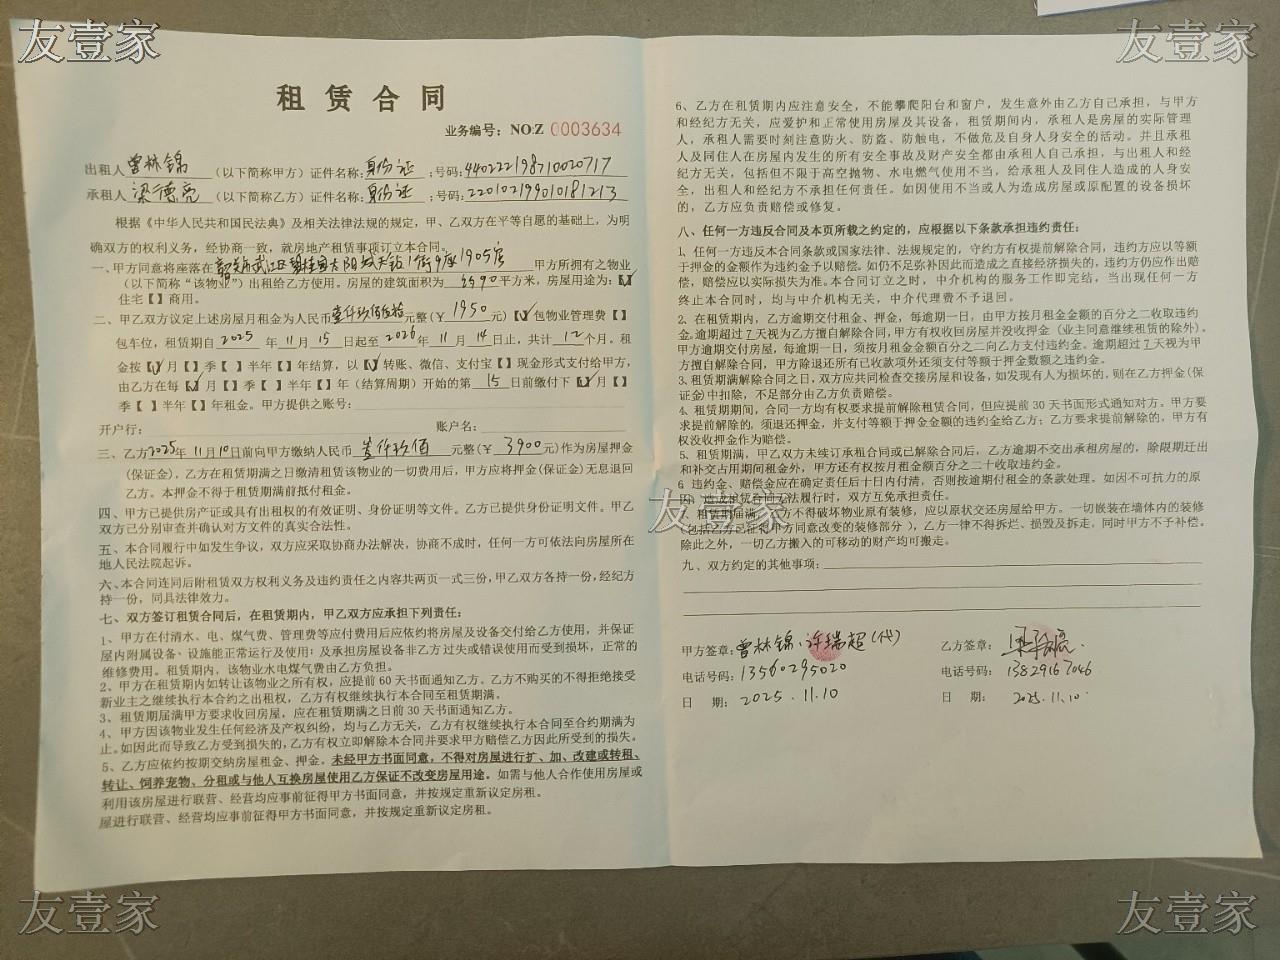 友壹家
友壹家
租赁合同
业务编号：NO:Z 0003634
出租人曾林锦（以下简称甲方）证件名称：身份证；号码：440222198710020717
承租人梁德亮（以下简称乙方）证件名称：身份证；号码：220102199010181213
根据《中华人民共和国民法典》及相关法律法规的规定，甲、乙双方在平等自愿的基础上，为明
确双方的权利义务，经协商一致，就房地产租赁事项订立本合同。
一、甲方同意将座落在韶关市武江区碧桂园太阳城天钻1街9座1905房 甲方所拥有之物业
（以下简称“该物业”）出租给乙方使用。房屋的建筑面积为 平方米，房屋用途为：【√】
住宅【 】商用。
二、甲乙双方议定上述房屋月租金为人民币壹仟玖佰伍拾元整(￥ 1950 元)【√】包物业管理费【 】
包车位，租赁期自 2025 年 11 月 15 日起至 2026 年 11 月 14 日止，共计 12 个月。租
金按【√】月【 】季【 】半年【 】年结算，以【√】转账、微信、支付宝【 】现金形式支付给甲方，
由乙方在每【√】月【 】季【 】半年【 】年（结算周期）开始的第 15 日前缴付下【√】月【 】
季【 】半年【 】年租金。甲方提供之账号：
开户行： 账户名：
三、乙方2025年 11月10日前向甲方缴纳人民币 叁仟玖佰 元整(￥ 3900 元)作为房屋押金
(保证金)，乙方在租赁期满之日缴清租赁该物业的一切费用后，甲方应将押金(保证金)无息退回
乙方。本押金不得于租赁期满前抵付租金。
四、甲方已提供房产证或具有出租权的有效证明、身份证明等文件。乙方已提供身份证明文件。甲乙
双方已分别审查并确认对方文件的真实合法性。
五、本合同履行中如发生争议，双方应采取协商办法解决，协商不成时，任何一方可依法向房屋所在
地人民法院起诉。
六、本合同连同后附租赁双方权利义务及违约责任之内容共两页一式三份，甲乙双方各持一份，经纪方
持一份，同具法律效力。
七、双方签订租赁合同后，在租赁期内，甲乙双方应承担下列责任：
1、甲方在付清水、电、煤气费、管理费等应付费用后应依约将房屋及设备交付给乙方使用，并保证
屋内附属设备、设施能正常运行及使用；及承担房屋设备非乙方过失或错误使用而受到损坏，正常的
维修费用。租赁期内，该物业水电煤气费由乙方负担。
2、甲方在租赁期内如转让该物业之所有权，应提前60天书面通知乙方。乙方不购买的不得拒绝接受
新业主之继续执行本合约之出租权，乙方有权继续执行本合同至租赁期满。
3、租赁期届满甲方要求收回房屋，应在租赁期满之日前30天书面通知乙方。
4、甲方因该物业发生任何经济及产权纠纷，均与乙方无关，乙方有权继续执行本合同至合约期满为
止。如因此而导致乙方受到损失的，乙方有权立即解除本合同并要求甲方赔偿乙方因此所受到的损失。
5、乙方应依约按期交纳房屋租金、押金。未经甲方书面同意，不得对房屋进行扩、加、改建或转租、
转让、饲养宠物、分租或与他人互换房屋使用乙方保证不改变房屋用途。如需与他人合作使用房屋或
利用该房屋进行联营、经营均应事前征得甲方书面同意，并按规定重新议定房租。
屋进行联营、经营均应事前征得甲方书面同意，并按规定重新议定房租。
6、乙方在租赁期内应注意安全，不能攀爬阳台和窗户，发生意外由乙方自己承担，与甲方
和经纪方无关，应爱护和正常使用房屋及其设备，租赁期间内，承租人是房屋的实际管理
人，承租人需要时刻注意防火、防盗、防触电，不做危及自身人身安全的活动。并且承租
人及同住人在房屋内发生的所有安全事故及财产安全都由承租人自己承担，与出租人和经
纪方无关，包括但不限于高空抛物、水电燃气使用不当，给承租人及同住人造成的人身安
全，出租人和经纪方不承担任何责任。如因使用不当或人为造成房屋或原配置的设备损坏
的，乙方应负责赔偿或修复。
八、任何一方违反合同及本页承载之约定的，应根据以下条款承担违约责任：
1、任何一方违反本合同条款或国家法律、法规规定的，守约方有权提前解除合同，违约方应以等额
于押金的金额作为违约金予以赔偿。如仍不足弥补因此而造成之直接经济损失的，违约方仍应作出赔
偿，赔偿应以实际损失为准。本合同订立之时，中介机构的服务工作即完结，当出现任何一方
终止本合同时，均与中介机构无关，中介代理费不予退回。
2、在租赁期内，乙方逾期交付租金、押金，每逾期一日，由甲方按月租金金额的百分之二收取违约
金。逾期超过7天视为乙方擅自解除合同，甲方有权收回房屋并没收押金（业主同意继续租赁的除外）。
甲方逾期交付房屋，每逾期一日，须按月租金金额百分之二向乙方支付违约金。逾期超过7天视为甲
方擅自解除合同，甲方除退还所有已收款项外还须支付等额于押金数额之违约金。
3、租赁期满解除合同之日，双方应共同检查交接房屋和设备，如发现有人为损坏的，则在乙方押金(保
证金)中扣除，不足部分由乙方负责赔偿。
4、租赁期期间，合同一方均有权要求提前解除租赁合同，但应提前30天书面形式通知对方。甲方要
求提前解除的，须退还押金，并支付等额于押金金额的违约金给乙方；乙方要求提前解除的，甲方有
权没收押金作为赔偿。
5、租赁期满，甲乙双方未续订承租合同或已解除合同后，乙方逾期不交出承租房的，除限期迁出
和补交占用期间租金外，甲方还有权按月租金额百分之二十收取违约金。
6 违约金、赔偿金应在确定责任后十日内付清，否则按逾期付租金的条款处理。如因不可抗力的原
因，造成租赁合同无法履行时，双方互免承担责任。
友壹家
7、租赁期届满，乙方不得破坏物业原有装修，应以原状交还房屋给甲方。一切嵌装在墙体内的装修
(包括乙方已征得甲方同意改变的装修部分)，乙方一律不得拆烂、损毁及拆走，同时甲方不予补偿。
除此之外，一切乙方搬入的可移动的财产均可搬走。
九、双方约定的其他事项：
甲方签章：曾林锦、许瑞超(代) 乙方签章：
电话号码：13560295020 电话号码：13829167046
日 期： 2025.11.10 日 期： 2025.11.10
友壹家
友壹家